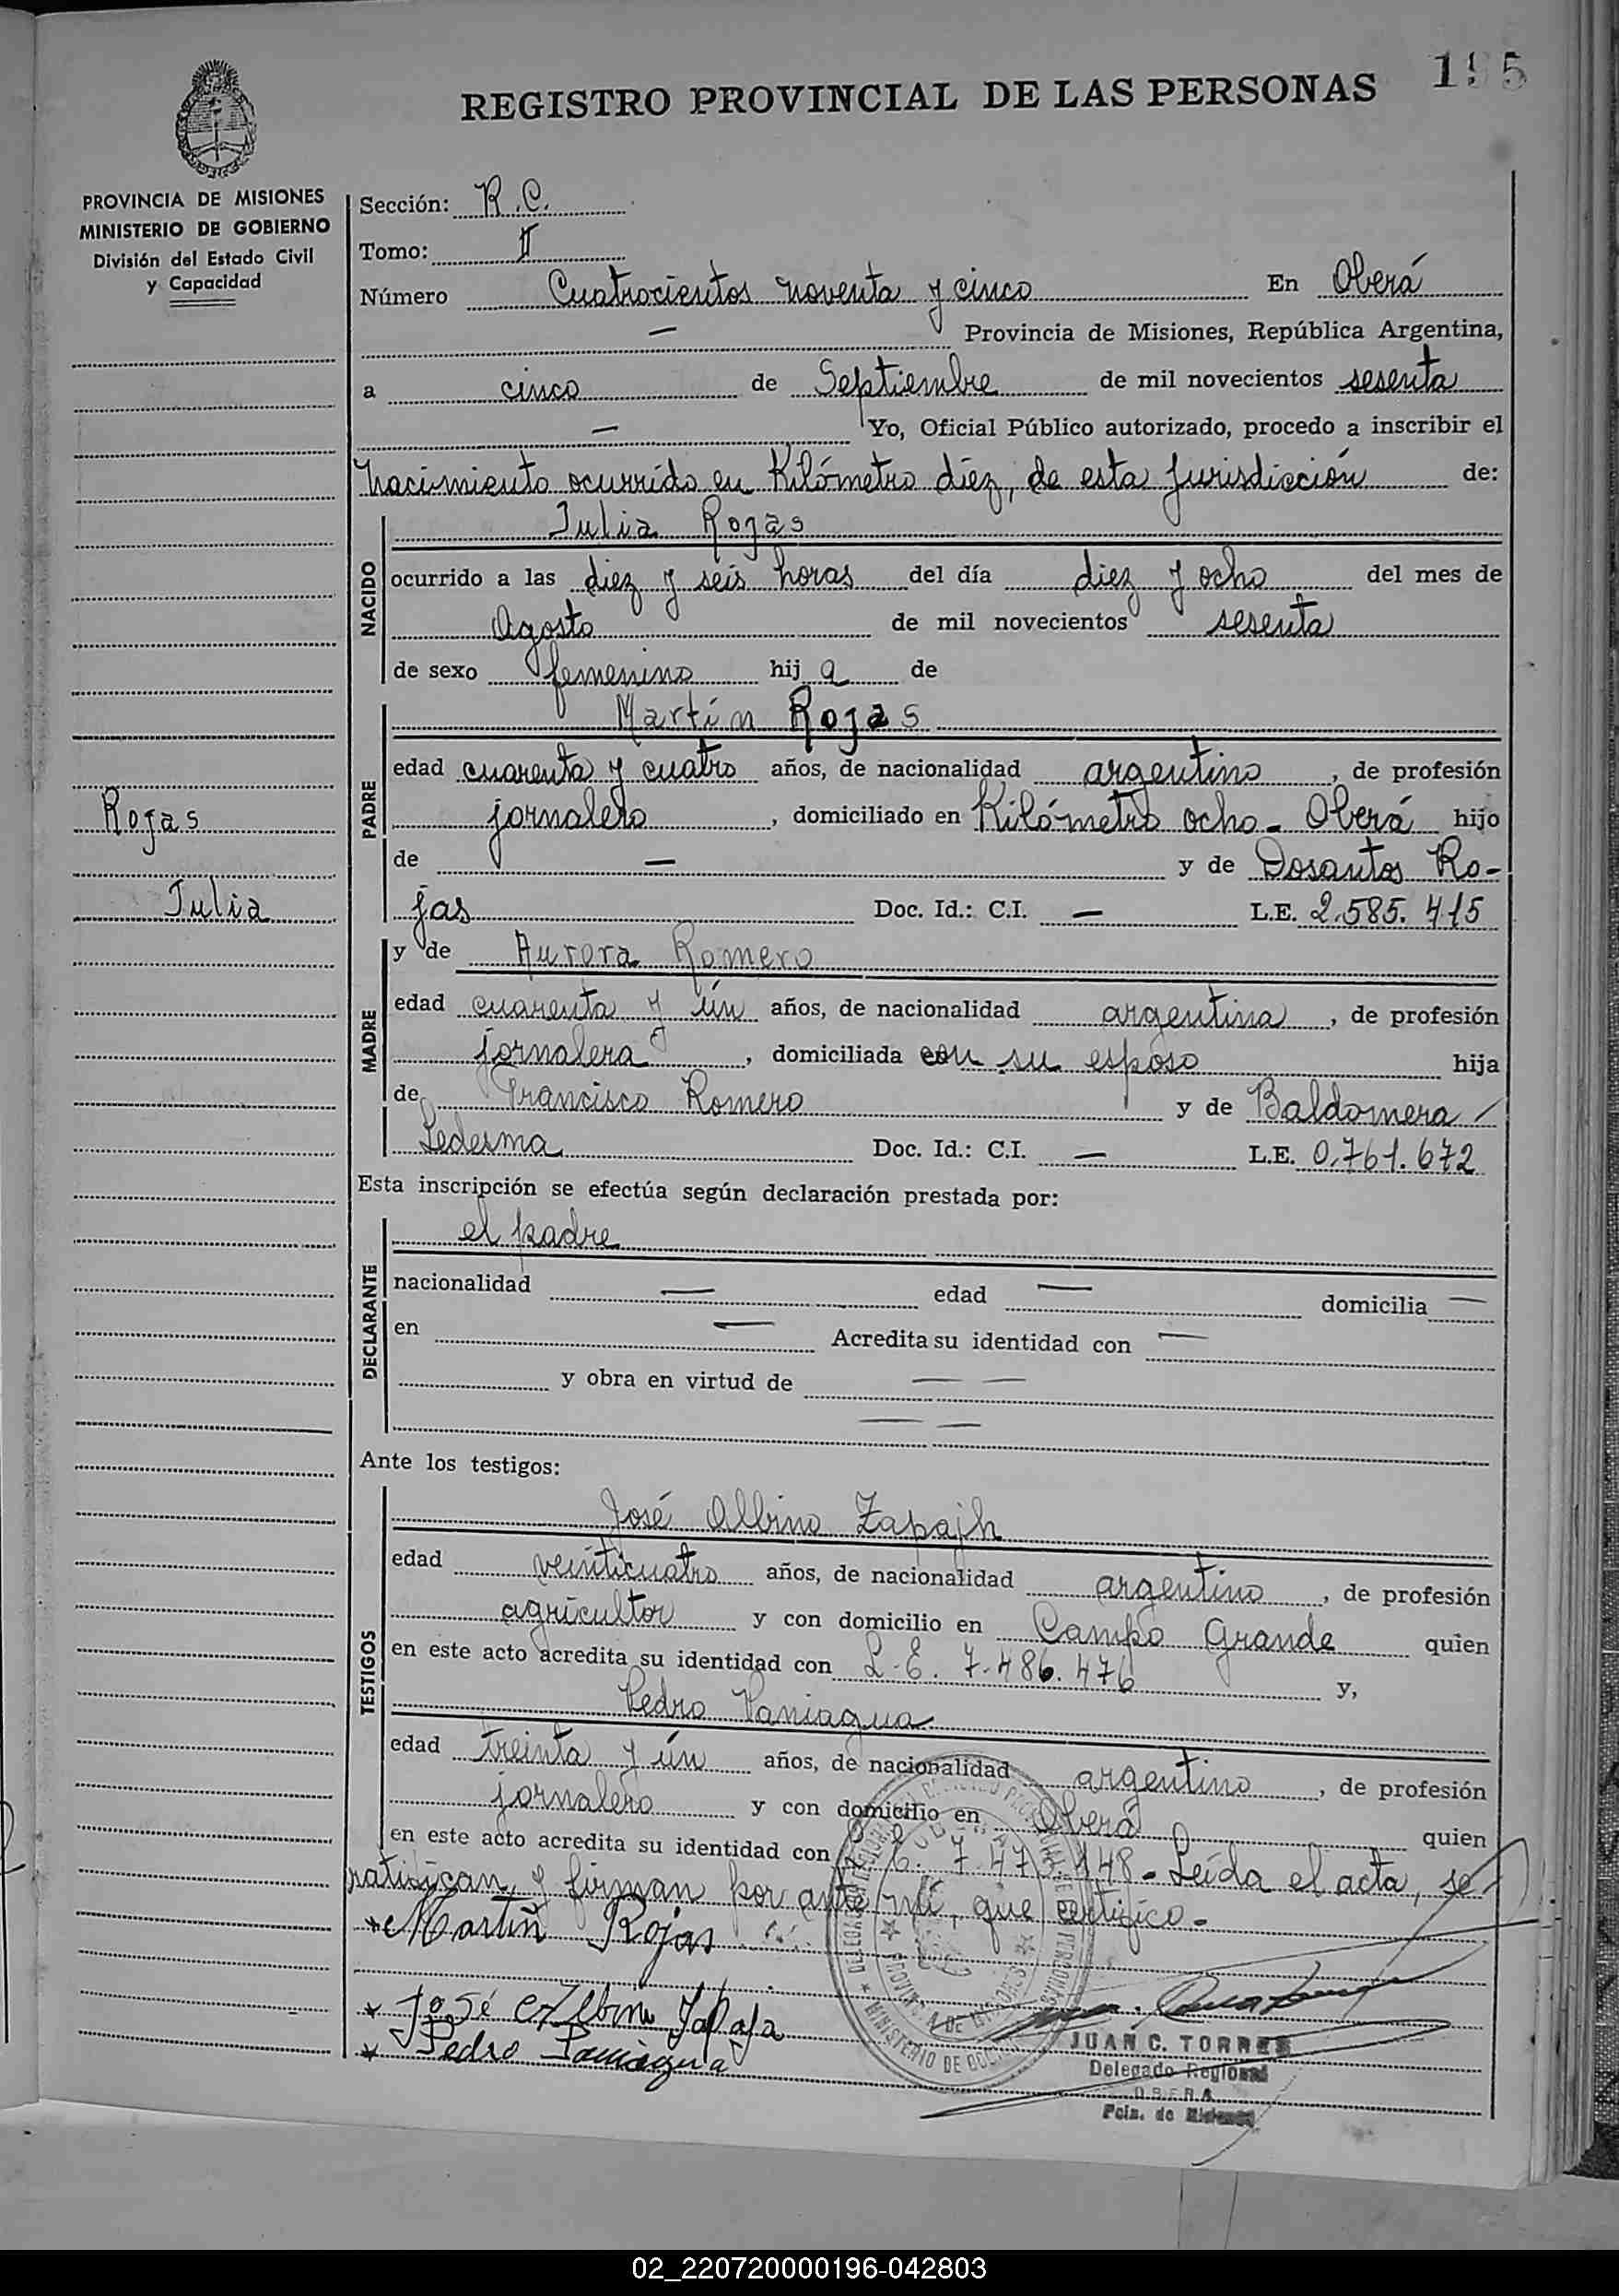 195
REGISTRO PROVINCIAL DE LAS PERSONAS
PROVINCIA DE MISIONES
MINISTERIO DE GOBIERNO
División del Estado Civil
y Capacidad
Sección: R.C.
Tomo: II
Número Cuatrocientos noventa y cinco En Oberá
— Provincia de Misiones, República Argentina,
a cinco de Septiembre de mil novecientos sesenta
— Yo, Oficial Público autorizado, procedo a inscribir el
nacimiento ocurrido en Kilómetro diez, de esta Jurisdicción de:
NACIDO
Julia Rojas
ocurrido a las diez y seis horas del día diez y ocho del mes de
Agosto de mil novecientos sesenta
de sexo femenino hija de
PADRE
Martín Rojas
edad cuarenta y cuatro años, de nacionalidad argentino, de profesión
jornalero, domiciliado en Kilómetro ocho - Oberá hijo
de — y de Dosantos Ro-
jas Doc. Id.: C.I. — L.E. 2.585.415
Rojas
Julia
MADRE
y de Aurora Romero
edad cuarenta y ún años, de nacionalidad argentina, de profesión
jornalera, domiciliada con su esposo hija
de Francisco Romero y de Baldomera /
Ledesma Doc. Id.: C.I. — L.E. 0.761.672
Esta inscripción se efectúa según declaración prestada por:
DECLARANTE
el padre
nacionalidad — edad — domicilia —
en — Acredita su identidad con —
y obra en virtud de — —
— —
Ante los testigos:
TESTIGOS
José Albino Zapajh
edad veinticuatro años, de nacionalidad argentino, de profesión
agricultor y con domicilio en Campo Grande quien
en este acto acredita su identidad con L.E. 7.486.476 y,
Pedro Paniagua
edad treinta y ún años, de nacionalidad argentino, de profesión
jornalero y con domicilio en Oberá quien
en este acto acredita su identidad con L.E. 7.473.148 - Leída el acta, se
ratifican, y firman por ante mí, que certifico -
Martin Rojas
José Albino
Pedro Paniagua
JUAN C. TORRES
Delegado Regional
OBERA
Pcia. de Misiones
02_220720000196-042803